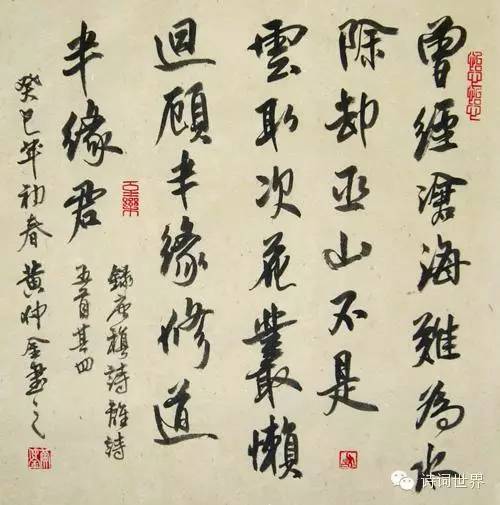 曾經滄海難為水
除却巫山不是
雲取次花叢懶
迴顧半緣修道
半緣君
錄唐稹詩離詩
五首其四
癸巳年初春黃金書之
诗词世界